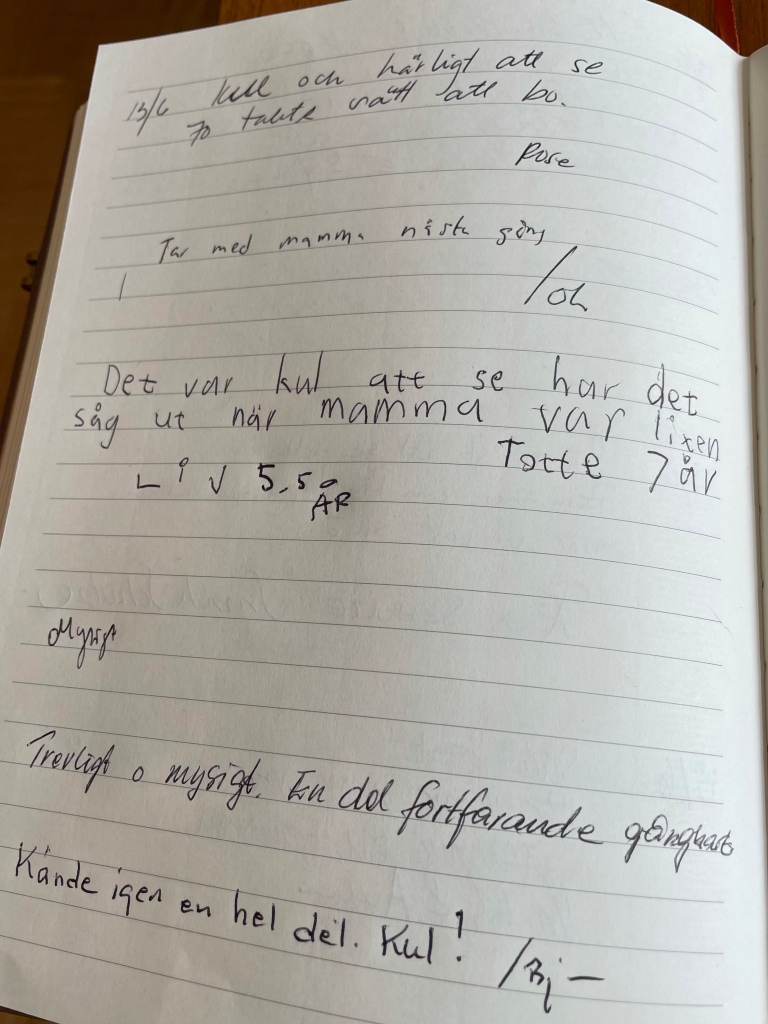 13/6 Kul och härligt att se
70 talets sätt att bo.
Rose
Tar med mamma nästa gång
/OL
Det var kul att se har det
såg ut när mamma var liten
Totte 7 år
LiV 5,5 ÅR
Mysigt
Trevligt o mysigt. En del fortfarande gångbart
Kände igen en hel del. Kul!